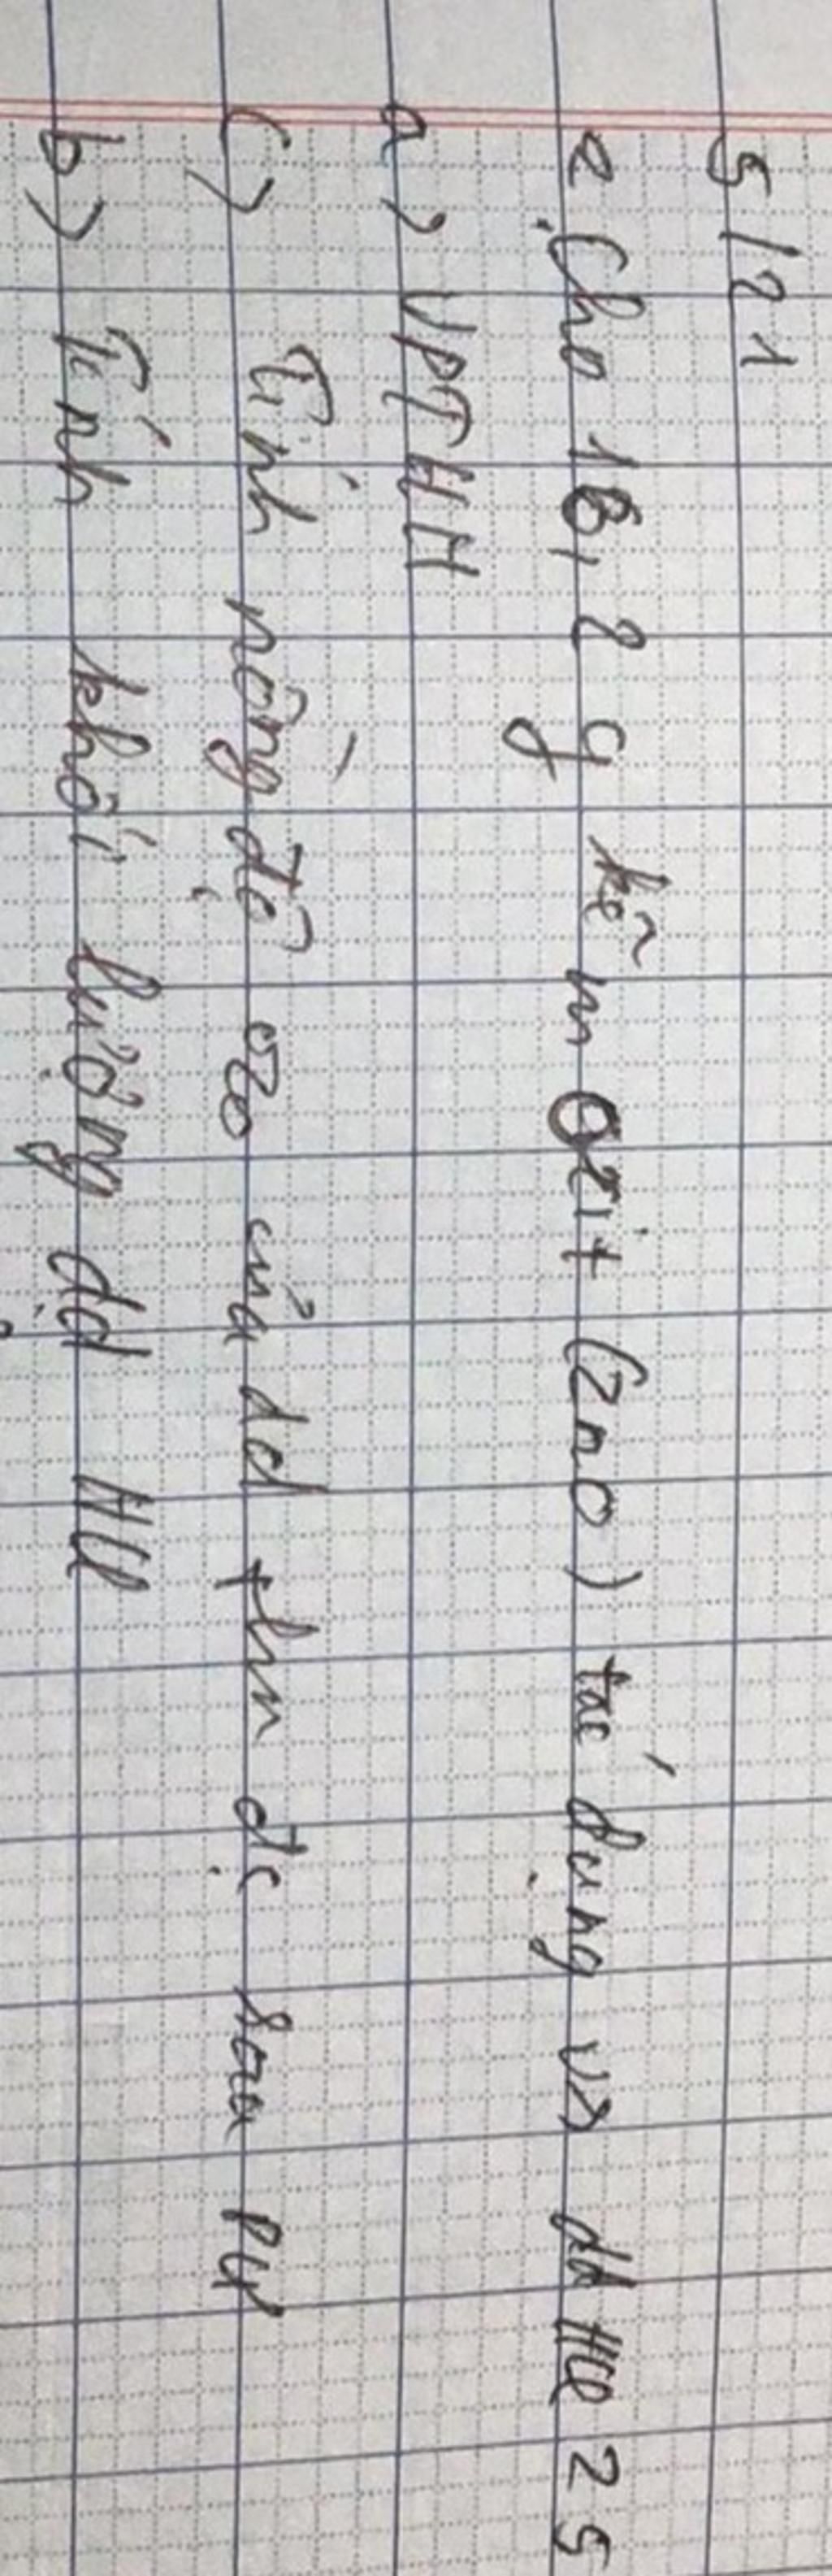 5/21
Cho 16,2 g kẽm oxit (ZnO) tác dụng vs dd HCl 25
a) VPTHH
c) Tính nồng độ % của dd thu đc sau PƯ
b) Tính khối lượng dd HCl